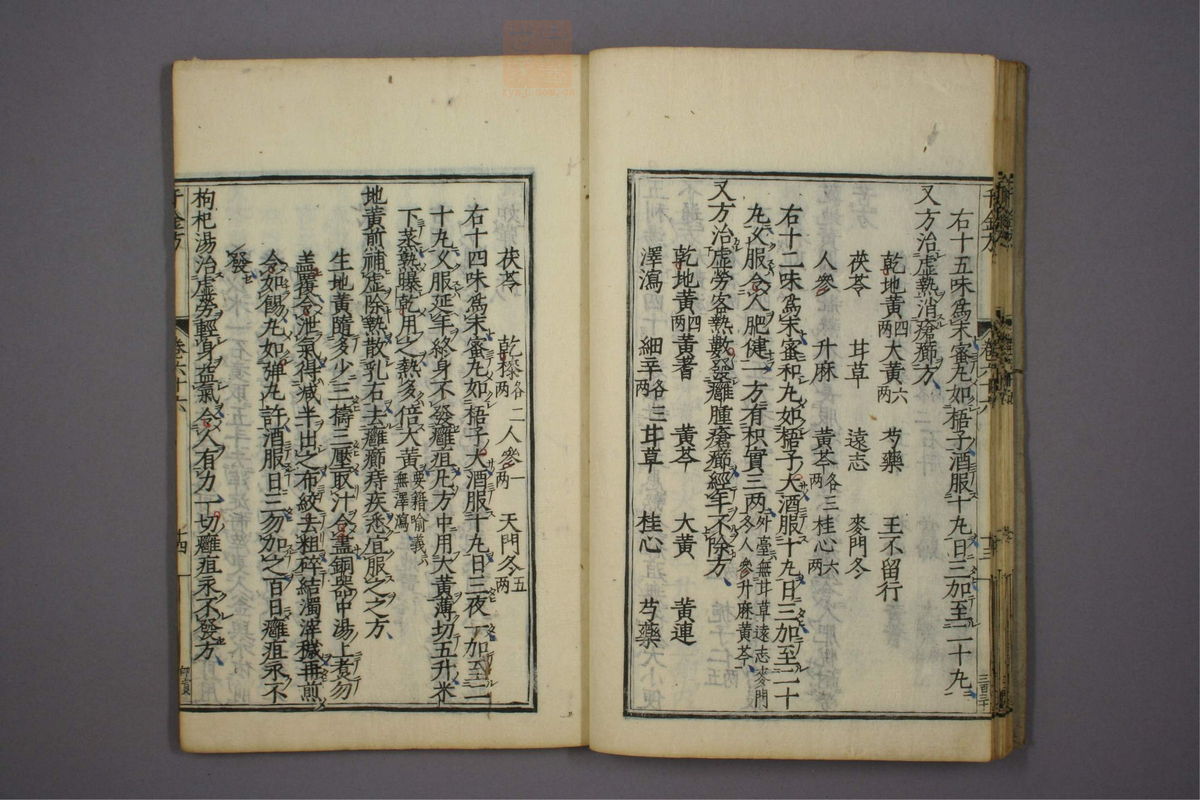 右十五味爲末蜜丸如梧子酒服十丸日三加至二十丸
又方治虛熱消瘡癤方
乾地黃四两 大黃六两 芍藥 王不留行
茯苓 甘草 遠志 麥門冬
人參 升麻 黃芩各三两 桂心六两
右十二味爲末蜜和丸如梧子大酒服十丸日三加至二十
丸又服令人肥健一方有枳實三两外臺無甘草遠志麥門冬人參升麻黃芩
又方治虛勞客熱數發癰腫瘡癤經年不除方
乾地黃四两 黃蓍 黃芩 大黃 黃連
澤瀉 細辛各三两 甘草 桂心 芍藥
茯苓 乾漆各二两 人參一两 天門冬五两
右十四味爲末蜜丸如梧子大酒服十丸日三夜一加至二
十丸又服延年終身不發癰疽凡方中用大黃薄切五升米
下蒸熟曝乾用之熱多倍大黃要籍喻義無澤瀉
地黃煎補虛除熱散乳石去癰癤痔疾悉宜服之之方
生地黃隨多少三擣三壓取汁令盡銅器中湯上煮勿
蓋覆令泄氣得減半出之布絞去粗碎結濁滓穢再煎
令如餳丸如彈丸許酒服日三勿加之百日癰疽永不
發
枸杞湯治虛勞輕身益氣令人有力一切癰疽永不發方
千金方